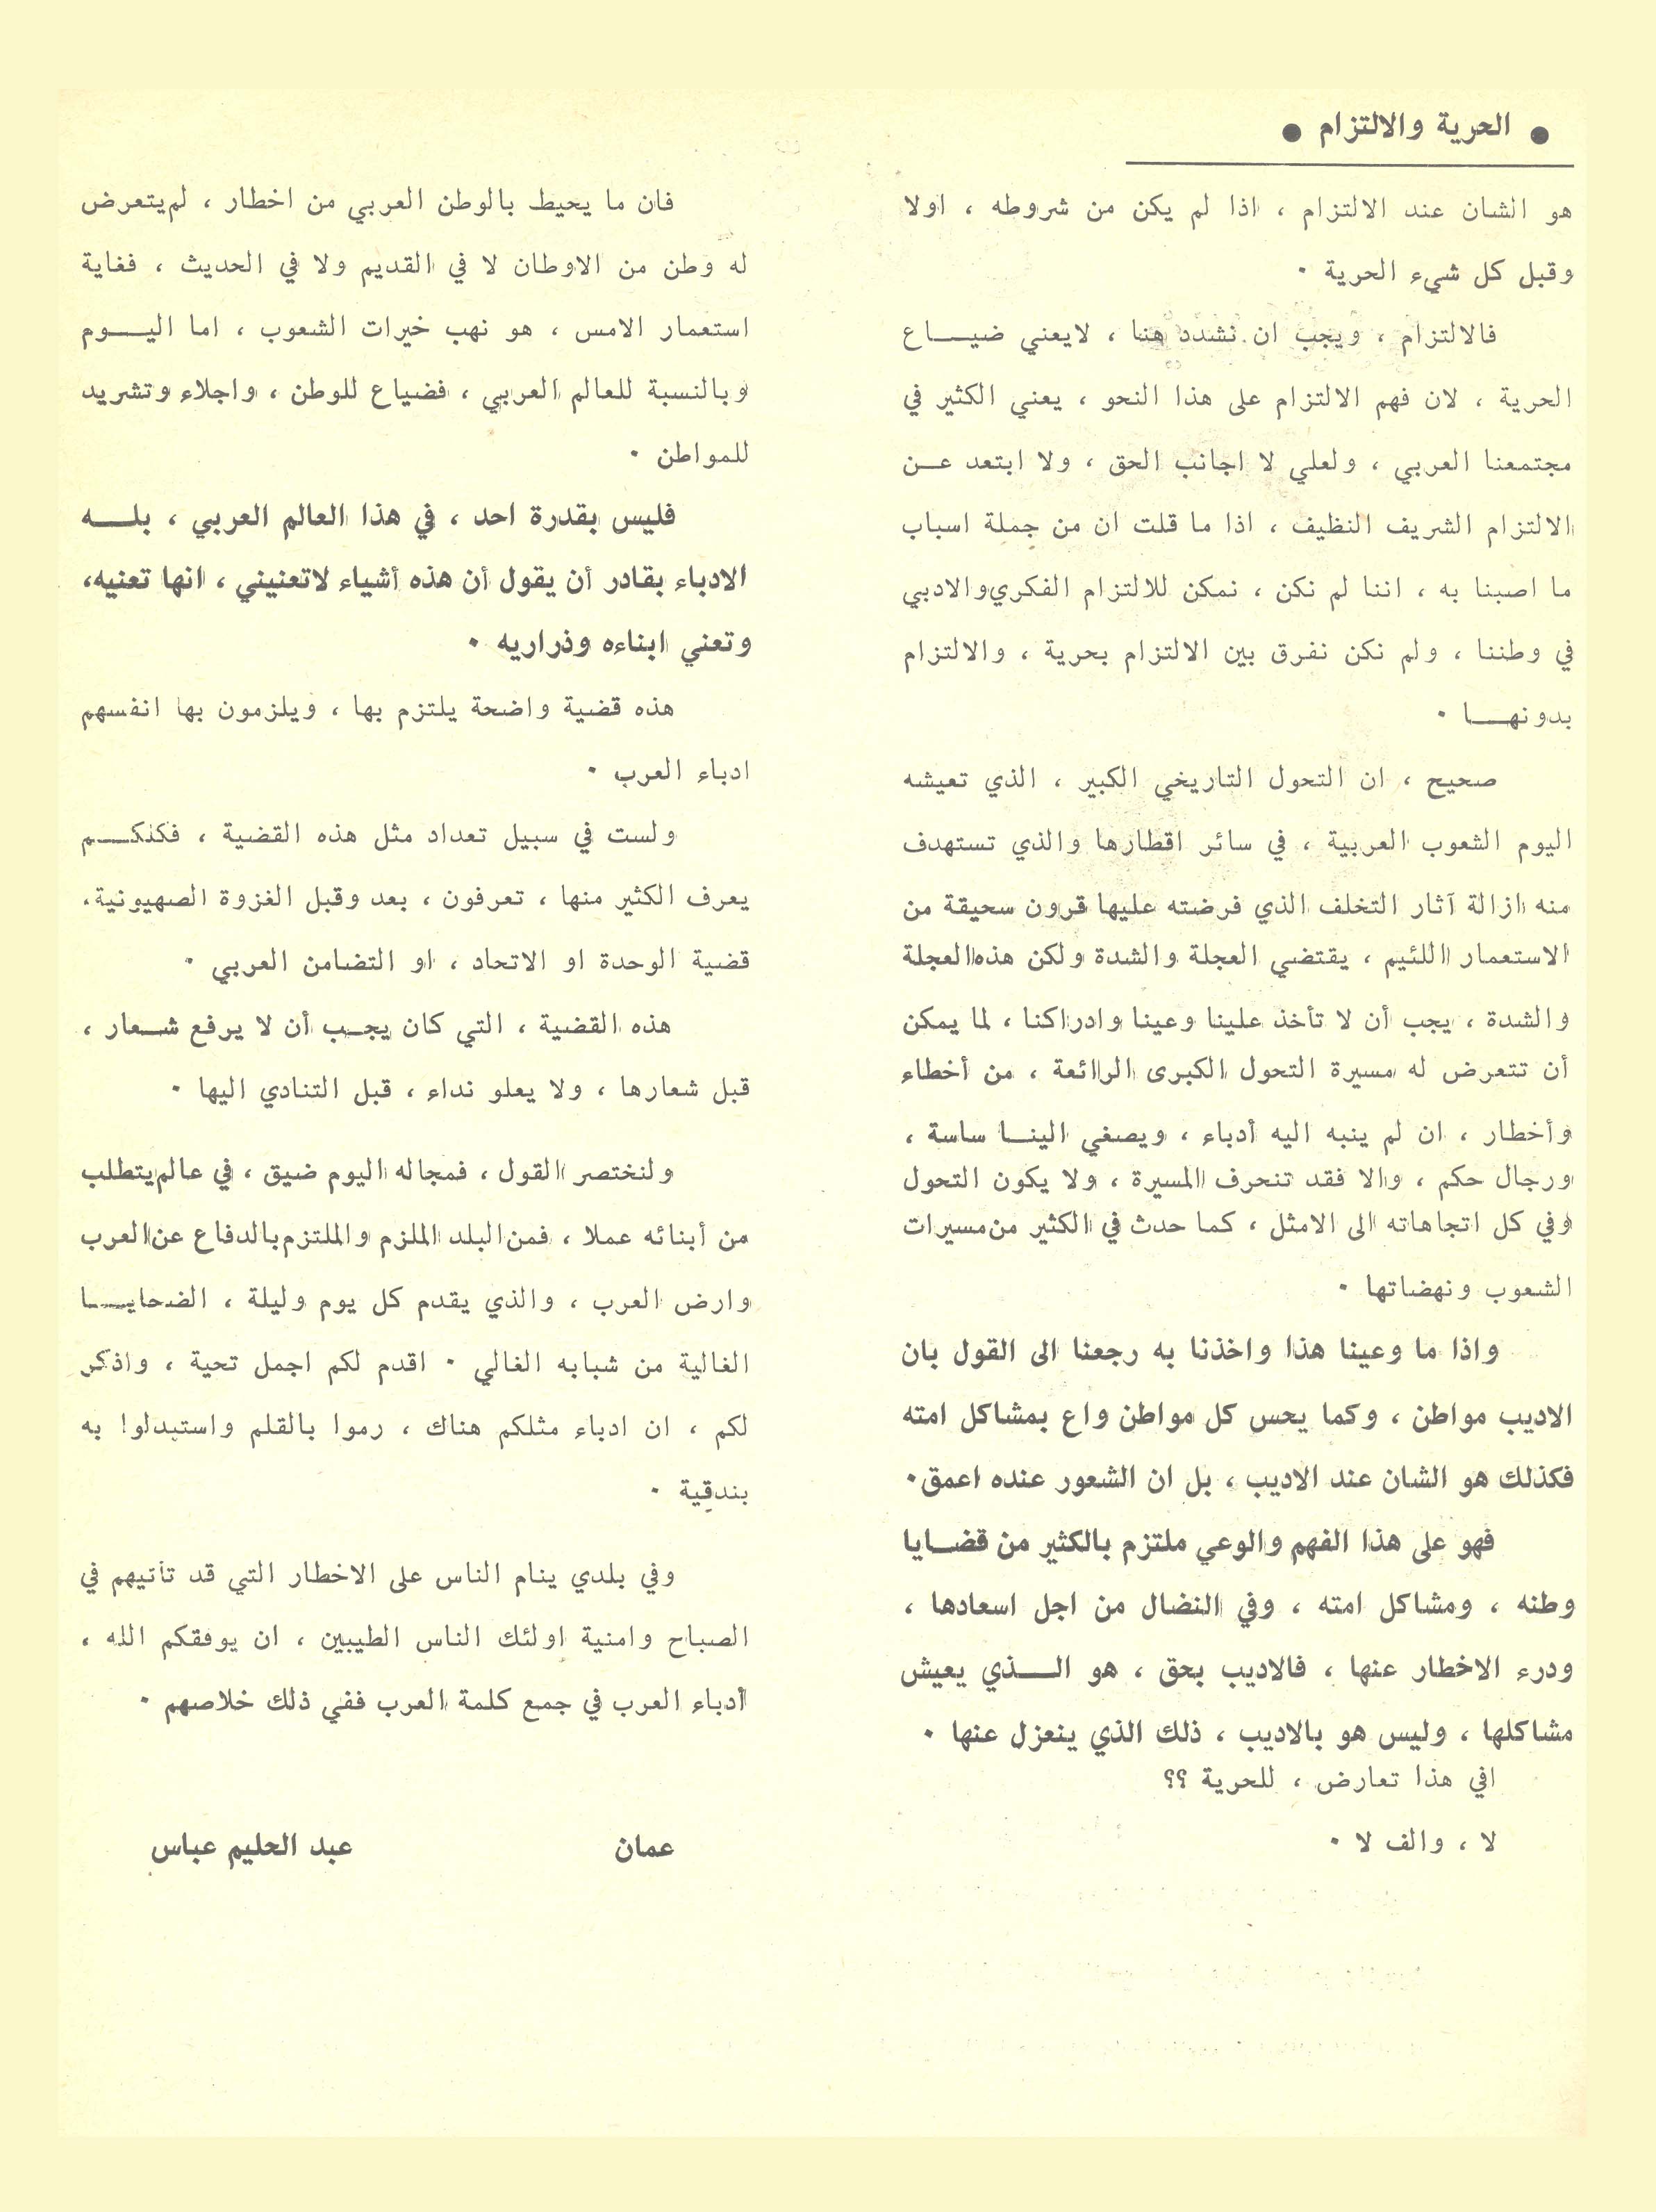 ● الحرية والالتزام ●
هو الشان عند الالتزام ، اذا لم يكن من شروطه ، اولا
وقبل كل شيء الحرية ٠
فالالتزام ، ويجب ان نشدد هنا ، لايعني ضيـــاع
الحرية ، لان فهم الالتزام على هذا النحو ، يعني الكثير في
مجتمعنا العربي ، ولعلي لا اجانب الحق ، ولا ابتعد عــن
الالتزام الشريف النظيف ، اذا ما قلت ان من جملة اسباب
ما اصبنا به ، اننا لم نكن ، نمكن للالتزام الفكري والادبي
في وطننا ، ولم نكن نفرق بين الالتزام بحرية ، والالتزام
بدونهـــا ٠
صحيح ، ان التحول التاريخي الكبير ، الذي تعيشه
اليوم الشعوب العربية ، في سائر اقطارها والذي تستهدف
منه ازالة آثار التخلف الذي فرضته عليها قرون سحيقة من
الاستعمار اللئيم ، يقتضي العجلة والشدة ولكن هذه العجلة
والشدة ، يجب أن لا تأخذ علينا وعينا وادراكنا ، لما يمكن
أن تتعرض له مسيرة التحول الكبرى الرائعة ، من أخطاء
وأخطار ، ان لم ينبه اليه أدباء ، ويصغي الينــا ساسة ،
ورجال حكم ، والا فقد تنحرف المسيرة ، ولا يكون التحول
وفي كل اتجاهاته الى الامثل ، كما حدث في الكثير من مسيرات
الشعوب ونهضاتها ٠
واذا ما وعينا هذا واخذنا به رجعنا الى القول بان
الاديب مواطن ، وكما يحس كل مواطن واع بمشاكل امته
فكذلك هو الشان عند الاديب ، بل ان الشعور عنده اعمق٠
فهو على هذا الفهم والوعي ملتزم بالكثير من قضــايا
وطنه ، ومشاكل امته ، وفي النضال من اجل اسعادها ،
ودرء الاخطار عنها ، فالاديب بحق ، هو الـــذي يعيش
مشاكلها ، وليس هو بالاديب ، ذلك الذي ينعزل عنها ٠
افي هذا تعارض ، للحرية ؟؟
لا ، والف لا ٠
فان ما يحيط بالوطن العربي من اخطار ، لم يتعرض
له وطن من الاوطان لا في القديم ولا في الحديث ، فغاية
استعمار الامس ، هو نهب خيرات الشعوب ، اما اليـــوم
وبالنسبة للعالم العربي ، فضياع للوطن ، واجلاء وتشريد
للمواطن ٠
فليس بقدرة احد ، في هذا العالم العربي ، بلـــه
الادباء بقادر أن يقول أن هذه أشياء لاتعنيني ، انها تعنيه،
وتعني ابناءه وذراريه ٠
هذه قضية واضحة يلتزم بها ، ويلزمون بها انفسهم
ادباء العرب ٠
ولست في سبيل تعداد مثل هذه القضية ، فكلكـــم
يعرف الكثير منها ، تعرفون ، بعد وقبل الغزوة الصهيونية،
قضية الوحدة او الاتحاد ، او التضامن العربي ٠
هذه القضية ، التي كان يجـب أن لا يرفع شـعار ،
قبل شعارها ، ولا يعلو نداء ، قبل التنادي اليها ٠
ولنختصر القول ، فمجاله اليوم ضيق ، في عالم يتطلب
من أبنائه عملا ، فمن البلد الملزم والملتزم بالدفاع عن العرب
وارض العرب ، والذي يقدم كل يوم وليلة ، الضحايـــا
الغالية من شبابه الغالي ٠ اقدم لكم اجمل تحية ، واذكر
لكم ، ان ادباء مثلكم هناك ، رموا بالقلم واستبدلوا به
بندقية ٠
وفي بلدي ينام الناس على الاخطار التي قد تأتيهم في
الصباح وامنية اولئك الناس الطيبين ، ان يوفقكم الله ،
أدباء العرب في جمع كلمة العرب ففي ذلك خلاصهم ٠
عمان عبد الحليم عباس